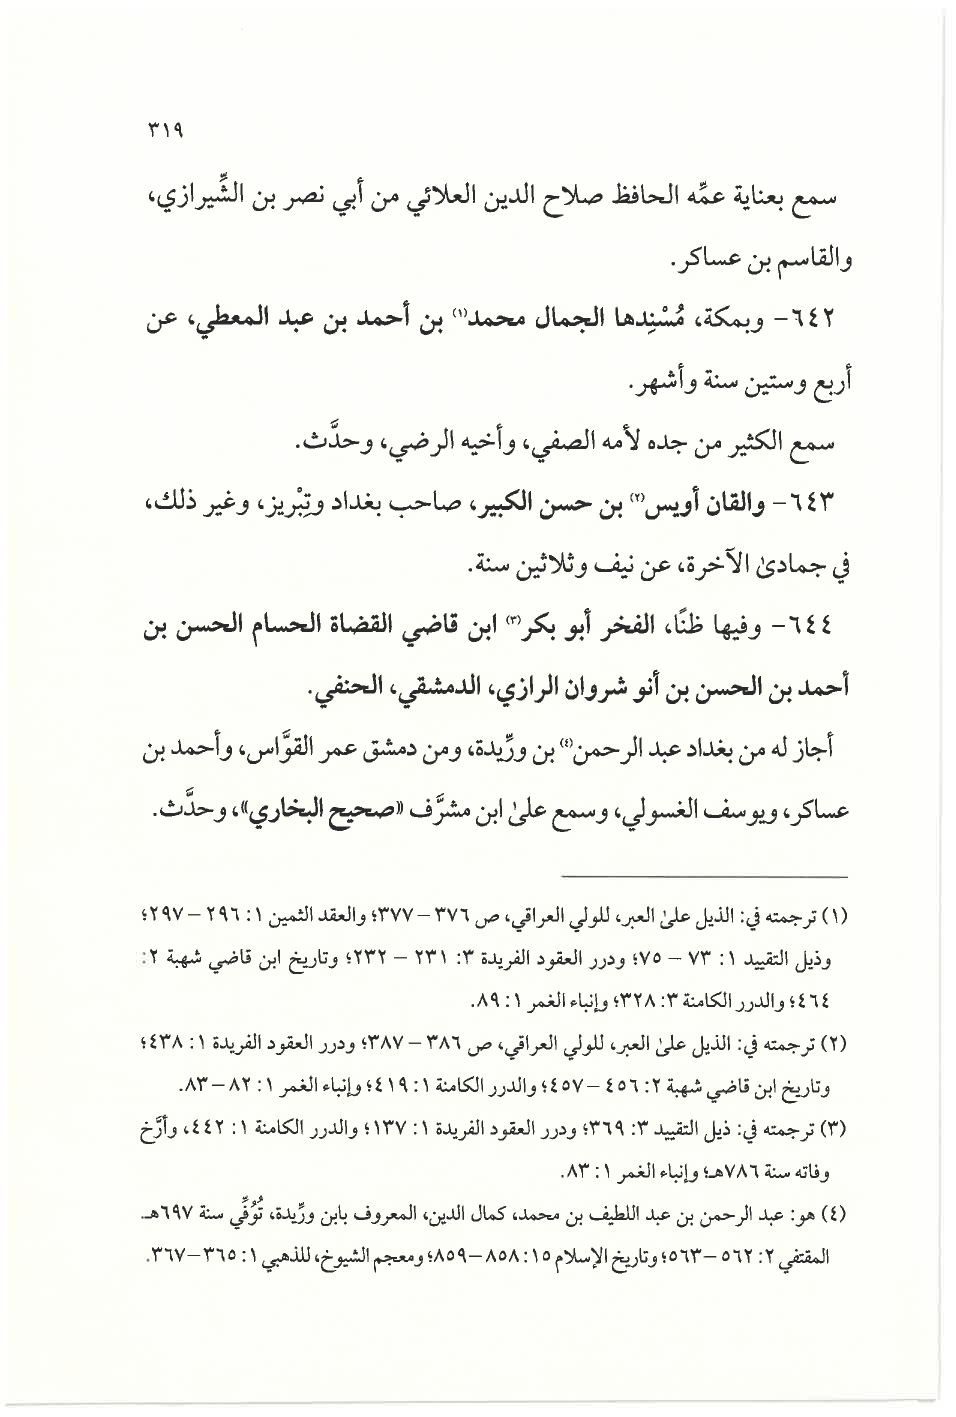 ٣١٩
سمع بعناية عمِّه الحافظ صلاح الدين العلائي من أبي نصر بن الشِّيرازي،
والقاسم بن عساكر.
٦٤٢- وبمكة، مُسْنِدها الجمال محمد(١) بن أحمد بن عبد المعطي، عن
أربع وستين سنة وأشهر.
سمع الكثير من جده لأمه الصفي، وأخيه الرضي، وحدَّث.
٦٤٣- والقان أويس(٢) بن حسن الكبير، صاحب بغداد وتِبْريز، وغير ذلك،
في جمادىٰ الآخرة، عن نيف وثلاثين سنة.
٦٤٤- وفيها ظنًا، الفخر أبو بكر(٣) ابن قاضي القضاة الحسام الحسن بن
أحمد بن الحسن بن أنو شروان الرازي، الدمشقي، الحنفي.
أجاز له من بغداد عبد الرحمن(٤) بن ورِّيدة، ومن دمشق عمر القوَّاس، وأحمد بن
عساكر، ويوسف الغسولي، وسمع علىٰ ابن مشرَّف «صحيح البخاري»، وحدَّث.
(١) ترجمته في: الذيل علىٰ العبر، للولي العراقي، ص ٣٧٦-٣٧٧؛ والعقد الثمين ١: ٢٩٦-٢٩٧؛
وذيل التقييد ١: ٧٣ - ٧٥؛ ودرر العقود الفريدة ٣: ٢٣١ - ٢٣٢؛ وتاريخ ابن قاضي شهبة ٢:
٤٦٤؛ والدرر الكامنة ٣: ٣٢٨؛ وإنباء الغمر ١: ٨٩.
(٢) ترجمته في: الذيل علىٰ العبر، للولي العراقي، ص ٣٨٦-٣٨٧؛ ودرر العقود الفريدة ١: ٤٣٨؛
وتاريخ ابن قاضي شهبة ٢: ٤٥٦-٤٥٧؛ والدرر الكامنة ١: ٤١٩؛ وإنباء الغمر ١: ٨٢-٨٣.
(٣) ترجمته في: ذيل التقييد ٣: ٣٦٩؛ ودرر العقود الفريدة ١: ١٣٧؛ والدرر الكامنة ١: ٤٤٢، وأرَّخ
وفاته سنة ٧٨٦هـ؛ وإنباء الغمر ١: ٨٣.
(٤) هو: عبد الرحمن بن عبد اللطيف بن محمد، كمال الدين، المعروف بابن ورِّيدة، تُوُفِّي سنة ٦٩٧هـ.
المقتفي ٢: ٥٦٢-٥٦٣؛ وتاريخ الإسلام ١٥: ٨٥٨-٨٥٩؛ ومعجم الشيوخ، للذهبي ١: ٣٦٥-٣٦٧.